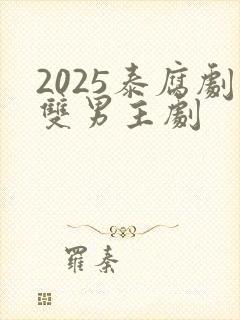 2025泰腐劇
雙男主劇
羅泰